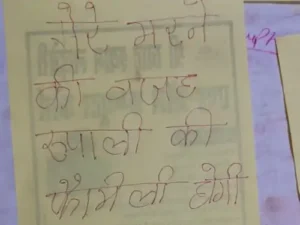 मेरे मरने
की वजह
रूपाली की
फैमेली होगी